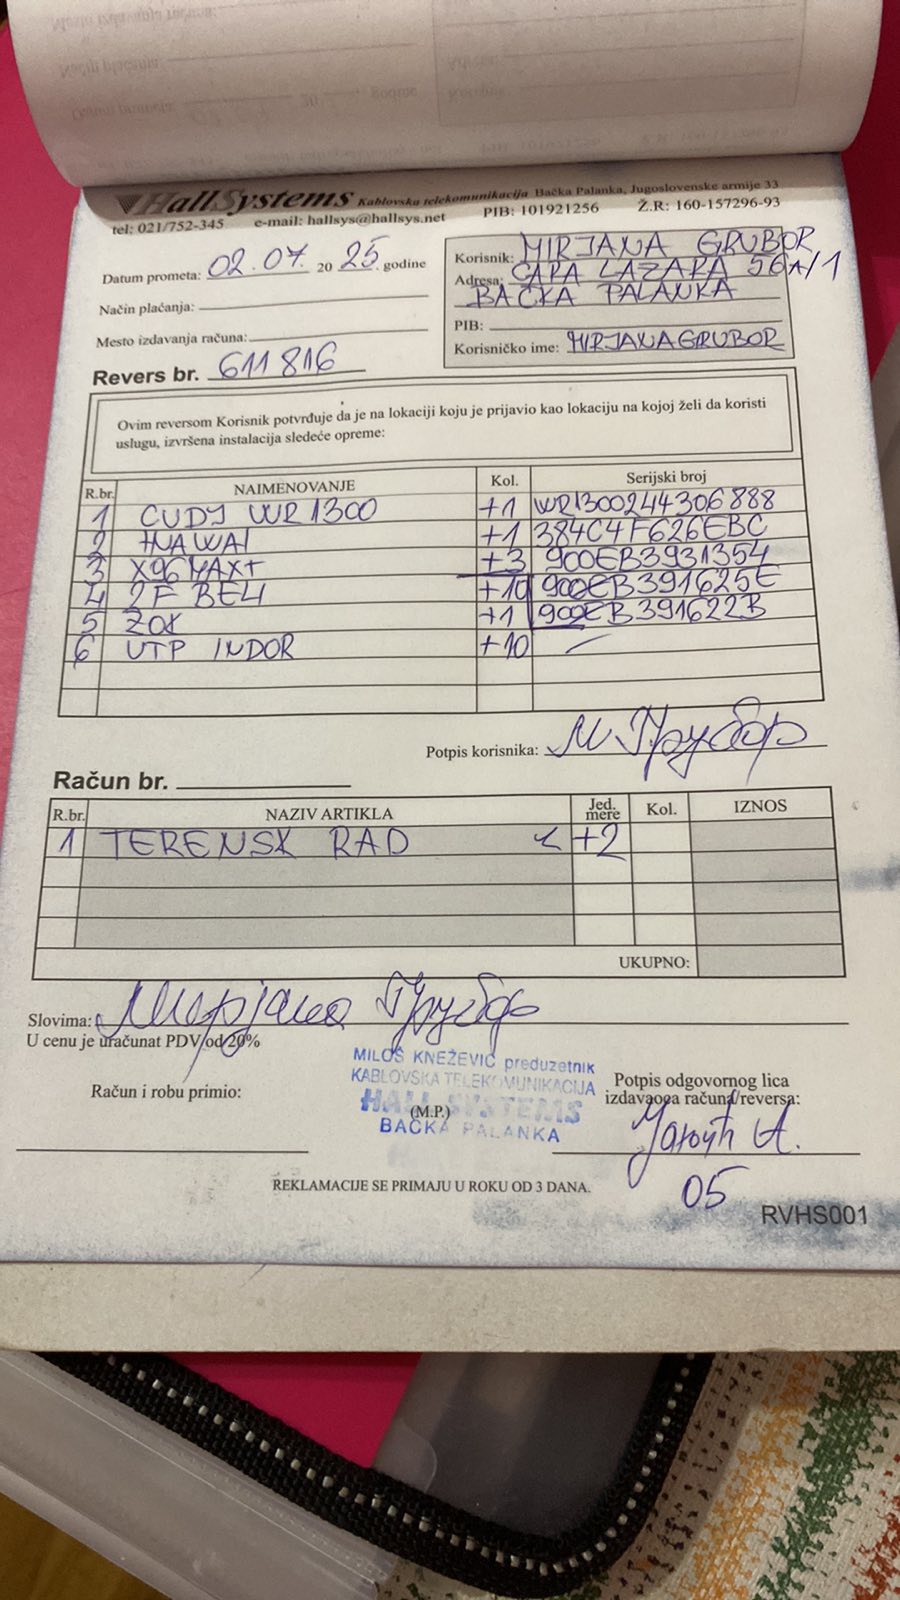 HallSystems Kablovska telekomunikacija Bačka Palanka, Jugoslovenske armije 33
tel: 021/752-345 e-mail: hallsys@hallsys.net PIB: 101921256 Ž.R: 160-157296-93
Datum prometa: 02.07. 20 25. godine
Način plaćanja:
Mesto izdavanja računa:
Revers br. 611816
Korisnik: MIRJANA GRUBOR
Adresa: CARA LAZARA 56A/1
BAČKA PALANKA
PIB:
Korisničko ime: MIRJANAGRUBOR
Ovim reversom Korisnik potvrđuje da je na lokaciji koju je prijavio kao lokaciju na kojoj želi da koristi
uslugu, izvršena instalacija sledeće opreme:
R.br. NAIMENOVANJE Kol. Serijski broj
1 CUDY WR1300 +1 WR1300244306888
2 HAWAI +1 384C4F626EBC
3 X96MAX+ +3 900EB3931354
4 2F BELI +10 900EB391625E
5 ZOK +1 900EB391622B
6 UTP INDOR +10
Potpis korisnika: М Грубор
Račun br.
R.br. NAZIV ARTIKLA Jed. mere Kol. IZNOS
1 TERENSK RAD +2
UKUPNO:
Slovima: Мирјана Грубор
U cenu je uračunat PDV od 20%
Račun i robu primio:
MILOŠ KNEŽEVIĆ preduzetnik
KABLOVSKA TELEKOMUNIKACIJA
HALL SYSTEMS
(M.P.)
BAČKA PALANKA
Potpis odgovornog lica
izdavaoga računa/reversa:
05
REKLAMACIJE SE PRIMAJU U ROKU OD 3 DANA.
RVHS001